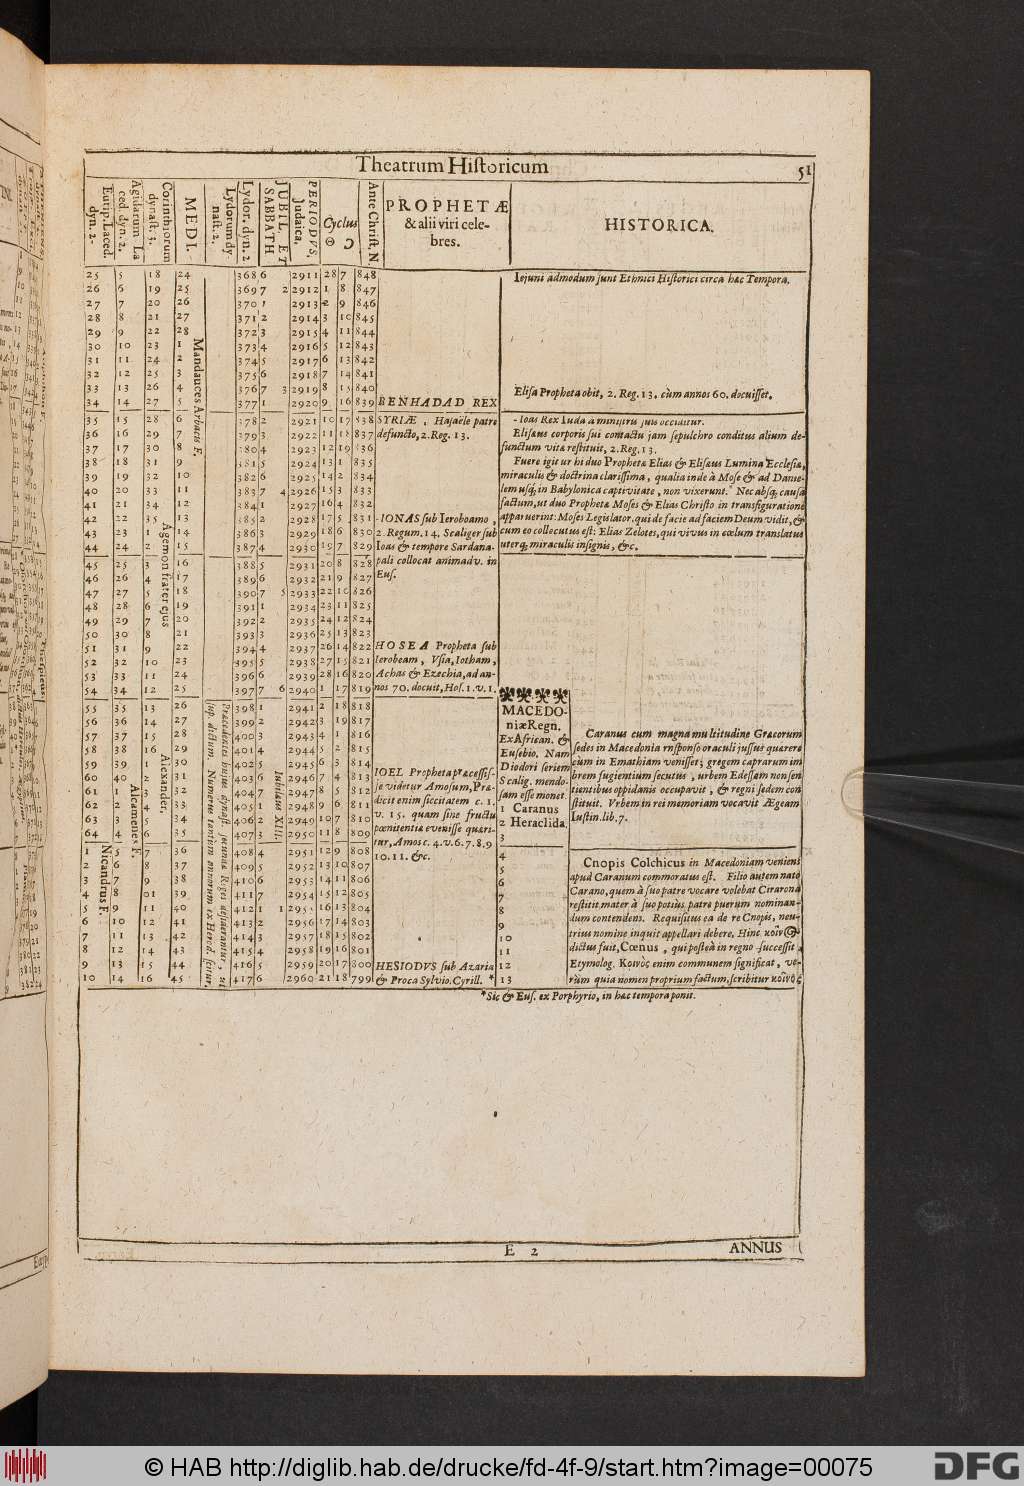 Theatrum Historicum
51
Eurip. Laced. dyn. 2.
Agidarum La ced. dyn. 2.
Corinthiorum dynast. 3.
MEDI.
Lydorum dynast. 2,
Lydor. dyn. 2
JUBIL. ET SABBATH
PERIODVS. Judaica.
Cyclus
☉ ☽
Ante Christ. N.
PROPHETÆ
& alii viri cele-
bres.
HISTORICA.
25 5 18 24 368 6 2911 28 7 848
26 6 19 25 369 7 2 2912 1 8 847
27 7 20 26 370 1 2913 2 9 846
28 8 21 27 371 2 2914 3 10 845
29 9 22 28 372 3 2915 4 11 844
30 10 23 1 373 4 2916 5 12 843
31 11 24 2 374 5 2917 6 13 842
32 12 25 3 375 6 2918 7 14 841
33 13 26 4 376 7 3 2919 8 15 840
34 14 27 5 377 1 2920 9 16 839
35 15 28 6 378 2 2921 10 17 838
36 16 29 7 379 3 2922 11 18 837
37 17 30 8 380 4 2923 12 19 836
38 18 31 9 381 5 2924 13 1 835
39 19 32 10 382 6 2925 14 2 834
40 20 33 11 383 7 4 2926 15 3 833
41 21 34 12 384 1 2927 16 4 832
42 22 35 13 385 2 2928 17 5 831
43 23 1 14 386 3 2929 18 6 830
44 24 2 15 387 4 2930 19 7 829
45 25 3 16 388 5 2931 20 8 828
46 26 4 17 389 6 2932 21 9 827
47 27 5 18 390 7 5 2933 22 10 826
48 28 6 19 391 1 2934 23 11 825
49 29 7 20 392 2 2935 24 12 824
50 30 8 21 393 3 2936 25 13 823
51 31 9 22 394 4 2937 26 14 822
52 32 10 23 395 5 2938 27 15 821
53 33 11 24 396 6 2939 28 16 820
54 34 12 25 397 7 6 2940 1 17 819
55 35 13 26 398 1 2941 2 18 818
56 36 14 27 399 2 2942 3 19 817
57 37 15 28 400 3 2943 4 1 816
58 38 16 29 401 4 2944 5 2 815
59 39 1 30 402 5 2945 6 3 814
60 40 2 31 403 6 2946 7 4 813
61 1 3 32 404 7 2947 8 5 812
62 2 4 33 405 1 2948 9 6 811
63 3 5 34 406 2 2949 10 7 810
64 4 6 35 407 3 2950 11 8 809
1 5 7 36 408 4 2951 12 9 808
2 6 8 37 409 5 2952 13 10 807
3 7 9 38 410 6 2953 14 11 806
4 8 01 39 411 7 2954 15 12 805
5 9 11 40 412 1 1 295 16 13 804
6 10 12 41 413 2 2956 17 14 803
7 11 13 42 414 3 2957 18 15 802
8 12 14 43 415 4 2958 19 16 801
9 13 15 44 416 5 2959 20 17 800
10 14 16 45 417 6 2960 21 18 799
Mandauces Arbacis F.
Agemon frater ejus
Alexander.
Alcamenes F.
Nicandrus F.
Iubilæus XIII.
Præcedentes hujus dynast. jacentia Reges desiderantur, ut
sup. dictum. Numerus tantùm annorum ex Herod. scitur.
BENHADAD REX
SYRIÆ, Hasaële patre
defuncto, 2. Reg. 13.
IONAS sub Ieroboamo,
2. Regum. 14. Scaliger sub
Ioas & tempore Sardana-
pali collocat animadv. in
Eus.
HOSEA Propheta sub
Ierobeam, Vsia, Iotham,
Achas & Ezechia, ad an-
nos 70. docuit, Hos. 1. v. 1.
IOEL Propheta præcessis-
se videtur Amosum, Præ-
dicit enim siccitatem c. 1.
v. 15. quam sine fructu
pœnitentiæ evenisse quæri-
tur, Amos c. 4. v. 6. 7. 8. 9
10. 11. &c.
HESIODVS sub Azaria
& Proca Sylvio. Cyrill. *
Iejuni admodum sunt Ethnici Historici circa hæc Tempora.
Elisa Propheta obit, 2. Reg. 13. cùm annos 60. docuisset.
Ioas Rex Iuda a ministris suis occiditur.
Elisæus corporis sui contactu jam sepulchro conditus alium de-
functum vitæ restituit, 2. Reg. 13.
Fuere igitur hi duo Prophetæ Elias & Elisæus Lumina Ecclesiæ,
miraculis & doctrina clarissima, qualia inde à Mose & ad Danie-
lem usq; in Babylonica captivitate, non vixerunt. Nec absq; causa
factum, ut duo Prophetæ Moses & Elias Christo in transfiguratione
apparuerint: Moses Legislator, qui de facie ad faciem Deum vidit, &
cum eo collocutus est: Elias Zelotes, qui vivus in cœlum translatus
uterq; miraculis insignis, &c.
MACEDO-
niæ Regn.
Ex African. &
Eusebio. Nam
Diodori seriem
Scalig. mendo-
sam esse monet.
1 Caranus
2 Heraclida.
3
4
5
6
7
8
9
10
11
12
13
Caranus cum magna multitudine Græcorum
sedes in Macedonia responso oraculi jussus quærere
cùm in Emathiam venisset; gregem caprarum im-
brem fugientium secutus, urbem Edessam non sen
tientibus oppidanis occupavit, & regni sedem con
stituit. Vrbem in rei memoriam vocavit Ægeam
Iustin. lib. 7.
Cnopis Colchicus in Macedoniam veniens
apud Caranum commoratus est. Filio autem nato
Carano, quem à suo patre vocare volebat Cirarona
restitit mater à suo potiùs patre puerum nominan-
dum contendens. Requisitus ea de re Cnopis, neu-
trius nomine inquit appellari debere. Hinc κοῖνος
dictus fuit, Cœnus, qui posteà in regno successit
Etymolog. Κοινὸς enim communem significat, ve-
rùm quia nomen proprium factum, scribitur κοῖνος
* Sic & Eus. ex Porphyrio, in hæc tempora ponit.
E 2
ANNUS
© HAB http://diglib.hab.de/drucke/fd-4f-9/start.htm?image=00075
DFG